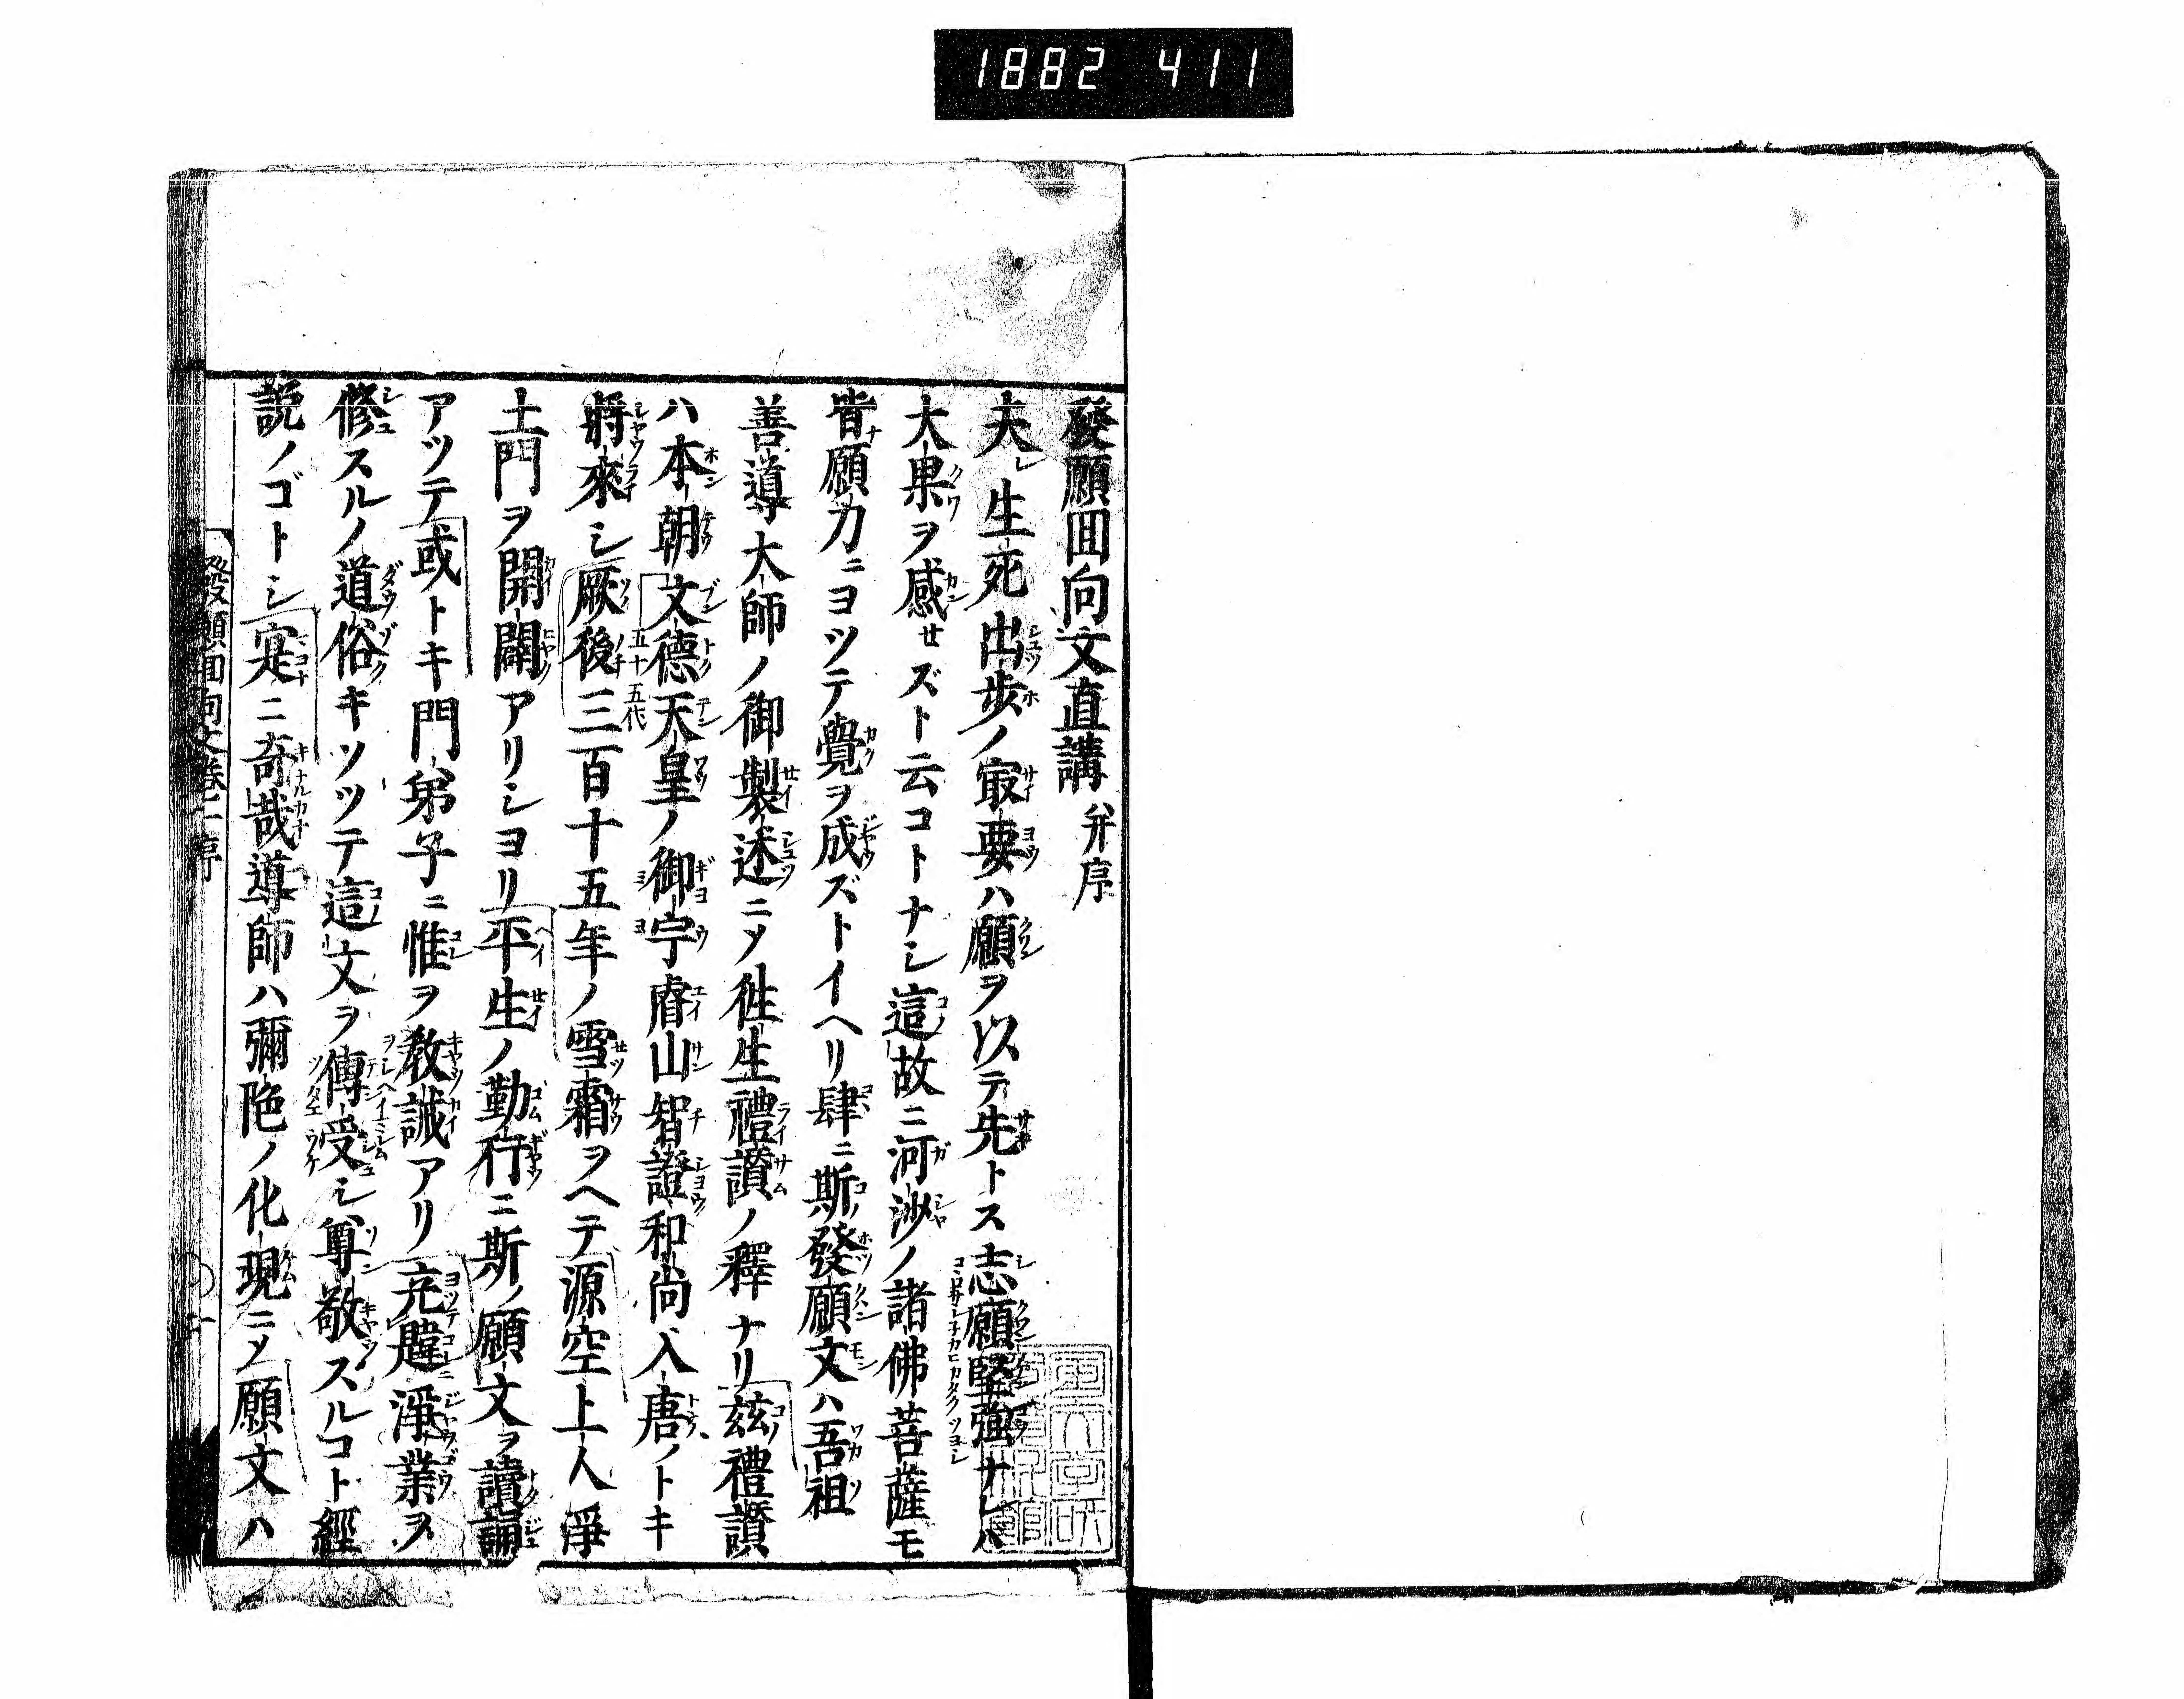 1882 411
發願回向文直講 并序
夫レ生死出歩ノ㝡要ハ願ヲ以テ先トス志願堅強ナレハ
大果ヲ感セズト云コトナシ這故ニ河沙ノ諸佛菩薩モ
皆願力ニヨツテ覺ヲ成ズトイヘリ肆ニ斯ノ發願文ハ吾祖
善導大師ノ御製述ニ〆徃生禮讃ノ釋ナリ兹禮讃
ハ本朝文德天皇ノ御宇睿山智證和尚入唐ノトキ
五十五代
將來シ厥後三百十五年ノ雪霜ヲヘテ源空上人淨
土門ヲ開闢アリシヨリ平生ノ勤行ニ斯ノ願文ヲ讀誦
アツテ或トキ門弟子ニ惟ヲ教誡アリ淨業ヲ
修スルノ道俗キソツテ這文ヲ傳受シ尊敬スルコト經
説ノゴトシ寔ニ奇哉導師ハ彌陀ノ化現ニ〆願文ハ
發願回向文卷一序